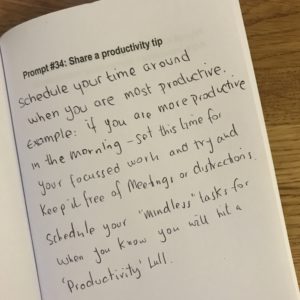 Prompt #34: Share a productivity tip
Schedule your time around
when you are most productive.
Example: if you are more productive
in the morning - set this time for
your focussed work and try and
keep it free of Meetings or distractions.
Schedule your "mindless" tasks for
when you know you will hit a
'Productivity' lull.